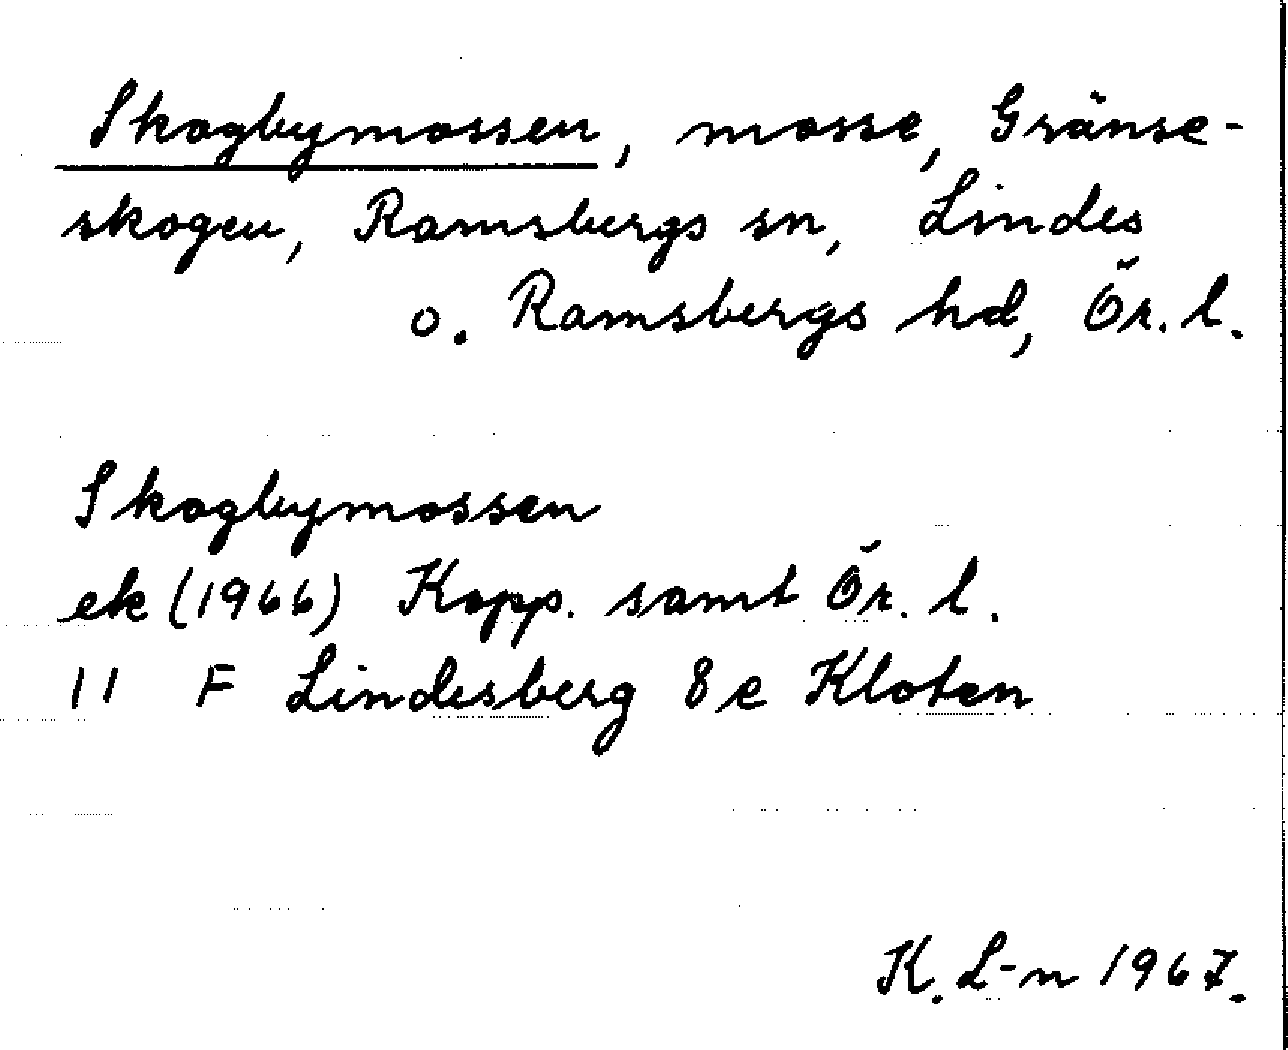 Skogbymossen, mosse, Gränse-
skogen, Ramsbergs sn, Lindes
o. Ramsbergs hd, Ör. l.
Skogbymossen
ek (1966) Kopp. samt Ör. l.
11 F Lindesberg 8 e Kloten
K. L-n 1967.